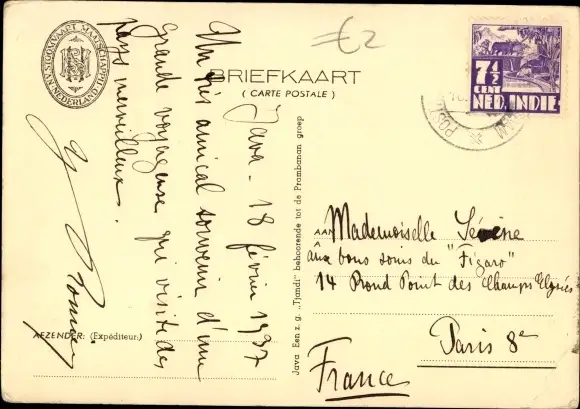 STOOMVAART MAATSCHAPPIJ
NEDERLAND
€2
BRIEFKAART
( CARTE POSTALE )
Java - 18 février 1937
Un très amical souvenir d'une
grande voyageuse qui visite des
pays merveilleux.
AFZENDER: (Expéditeur:)
Java Een z. g. „Tjandi" behoorende tot de Prambanan groep
7½
CENT
NED. INDIE
POST
AAN Mademoiselle
aux bons soins du "Figaro"
14 Rond Point des Champs Elysées
Paris 8e
France